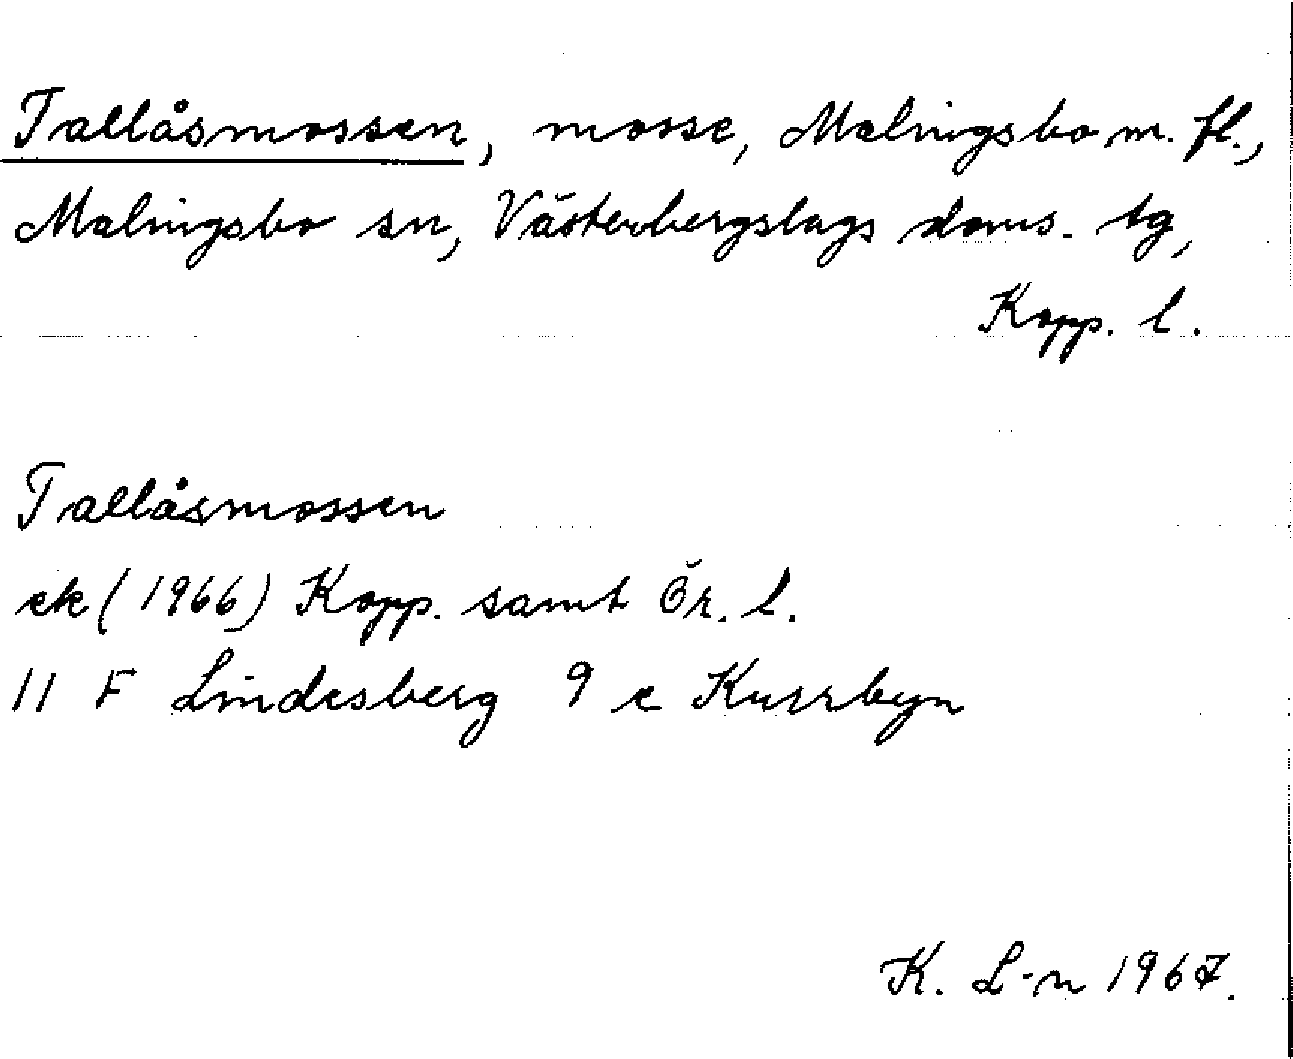 Tallåsmossen, mosse, Malingsbo m. fl.,
Malingsbo sn, Västerbergslags doms. tg,
Kopp. l.
Tallåsmossen
ek (1966) Kopp. samt Ör. l.
11 F Lindesberg 9 e Kurrbyn
K. L-n 1967.